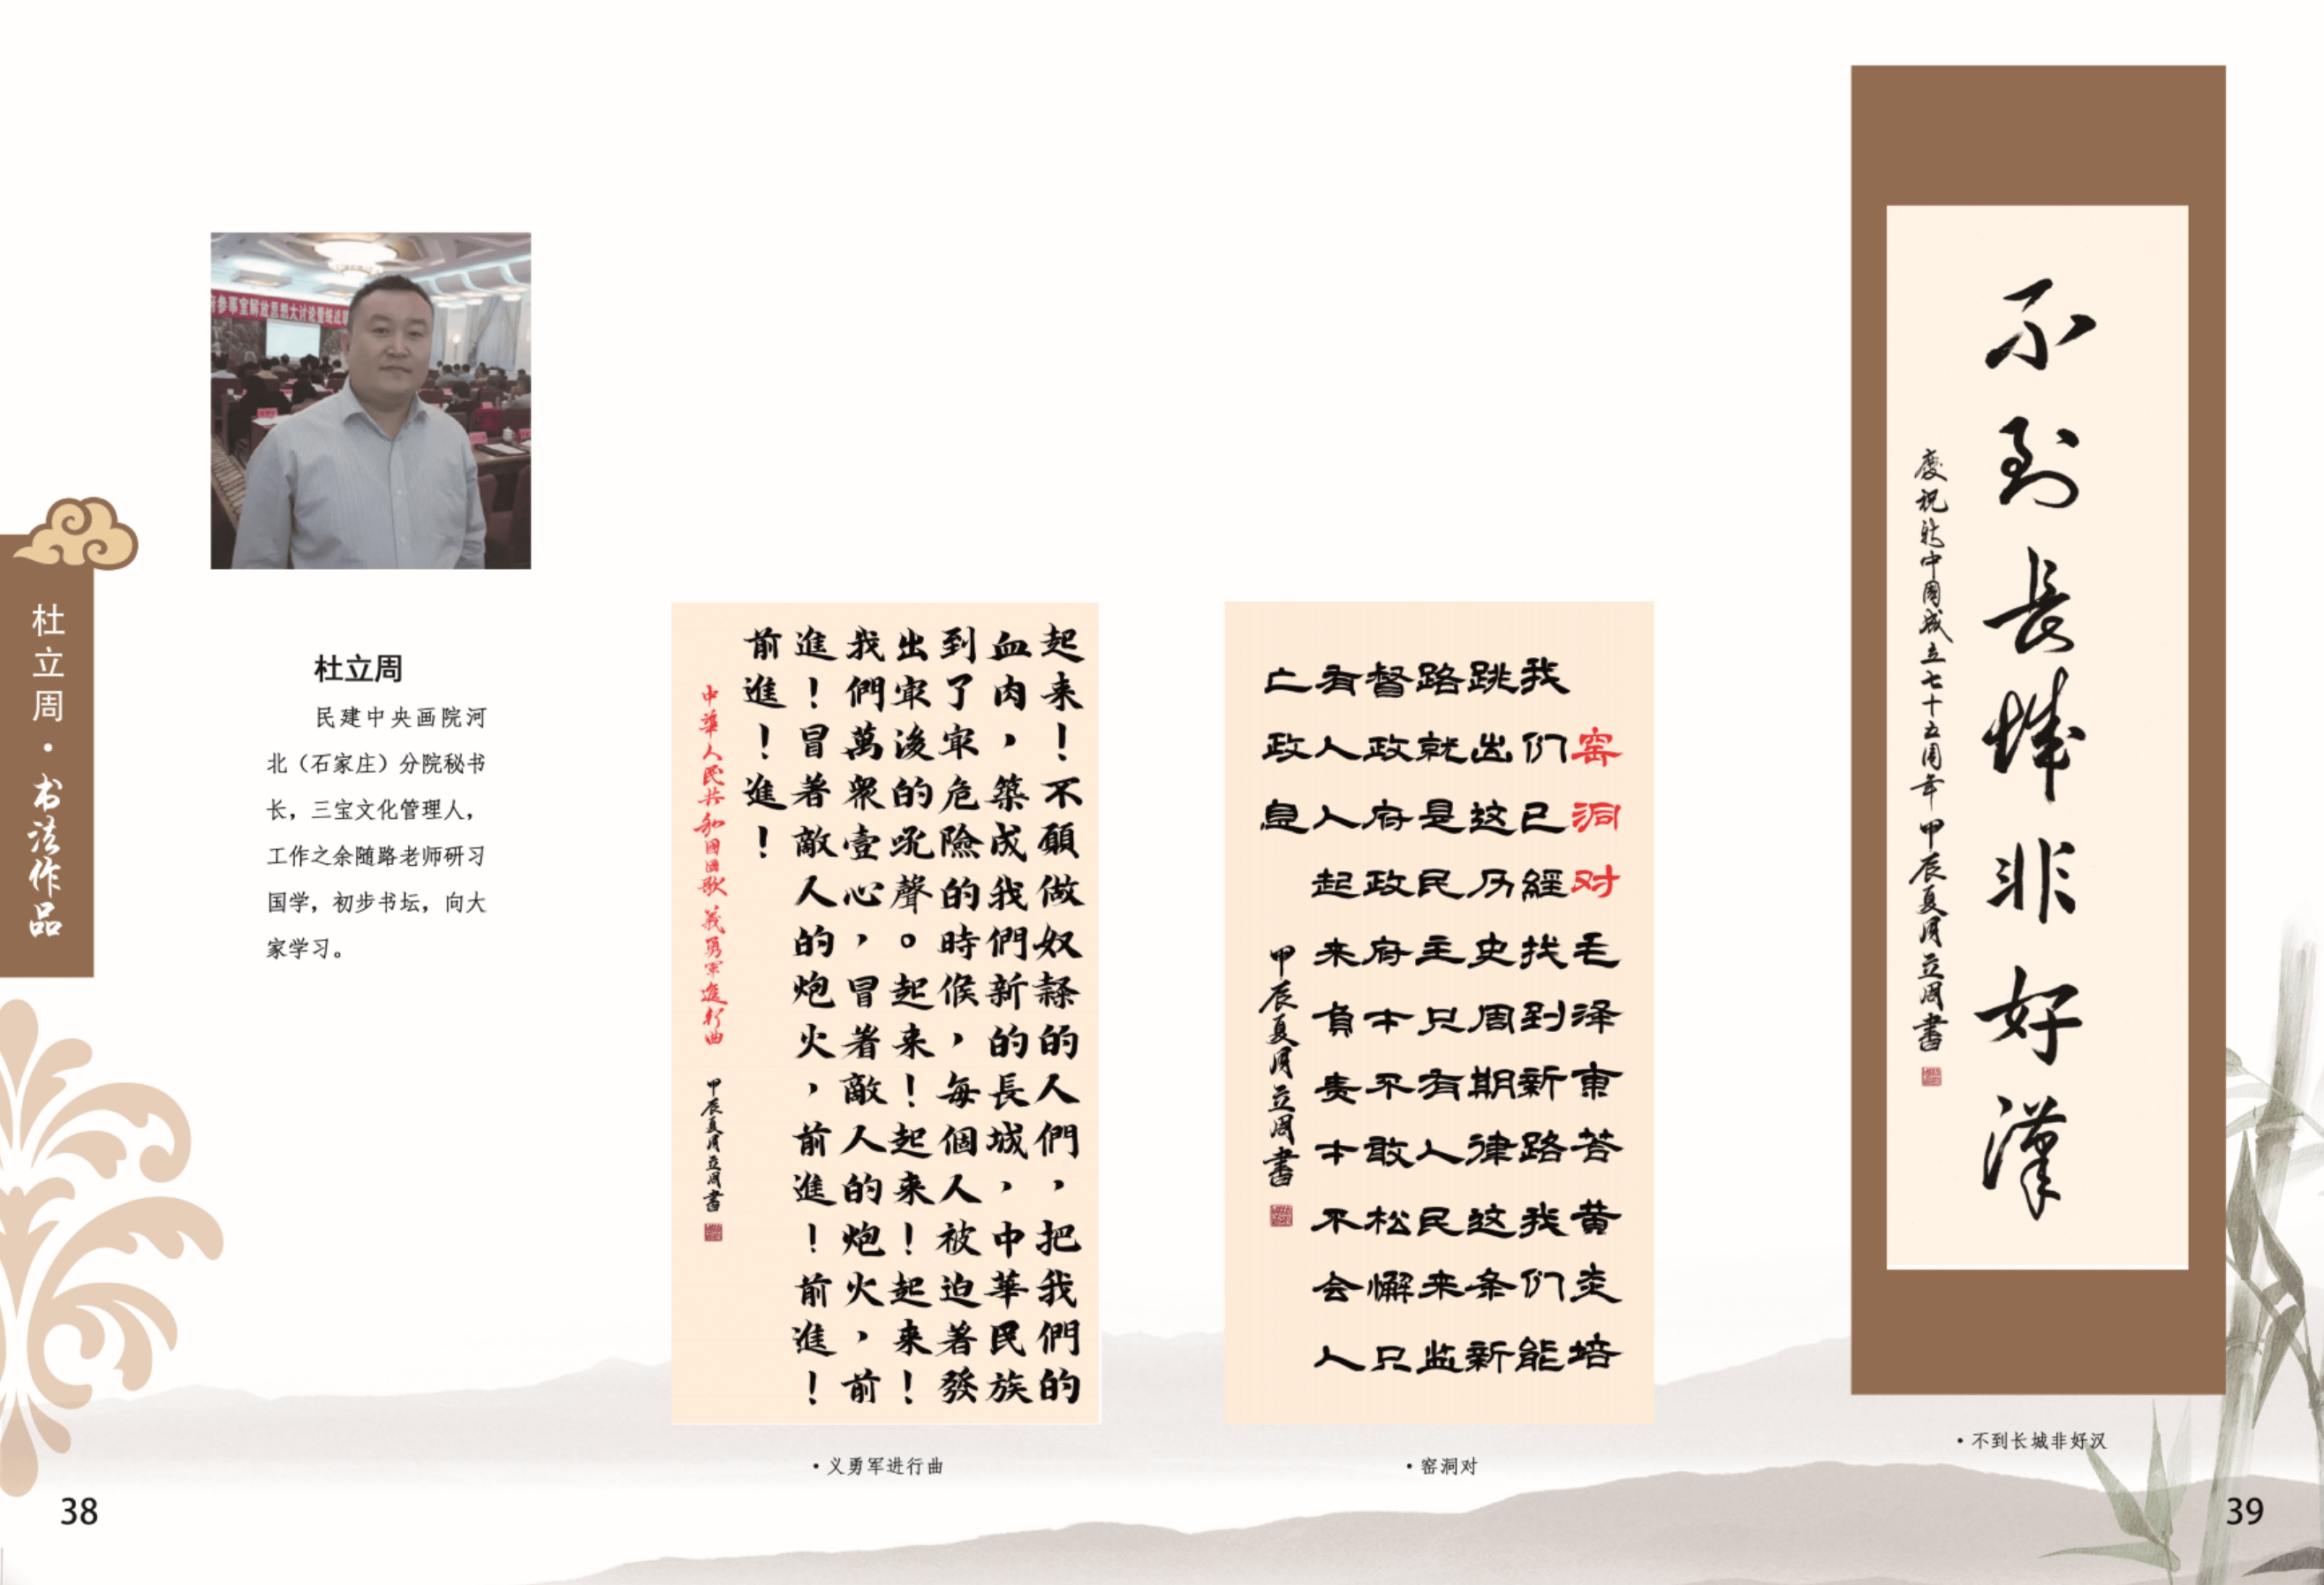 杜立周·书法作品
府参事室解放思想大讨论暨统战
杜立周
民建中央画院河
北（石家庄）分院秘书
长，三宝文化管理人，
工作之余随路老师研习
国学，初步书坛，向大
家学习。
起来！不願做奴隸的人們，把我們的
血肉，築成我們新的長城，中華民族
到了軍危險的時候，每個人被迫著發
出冣後的吼聲。起来！起来！起来！
我們萬衆壹心，冒著敵人的炮火，前
進！冒著敵人的炮火，前進！前進！
前進！進！
中華人民共和國國歌 義勇軍進行曲 甲辰夏月立周書
• 义勇军进行曲
窑洞对 毛泽東荅黄炎培
我们已經找到新路我们能
跳出这历史周期律这条新
路就是民主只有人民来监
督政府政府才不敢松懈只
有人人起来負责才不会人
亡政息
甲辰夏月立周書
• 窑洞对
不到長城非好漢
慶祝新中國成立七十五周年甲辰夏月立周書
• 不到长城非好汉
38
39